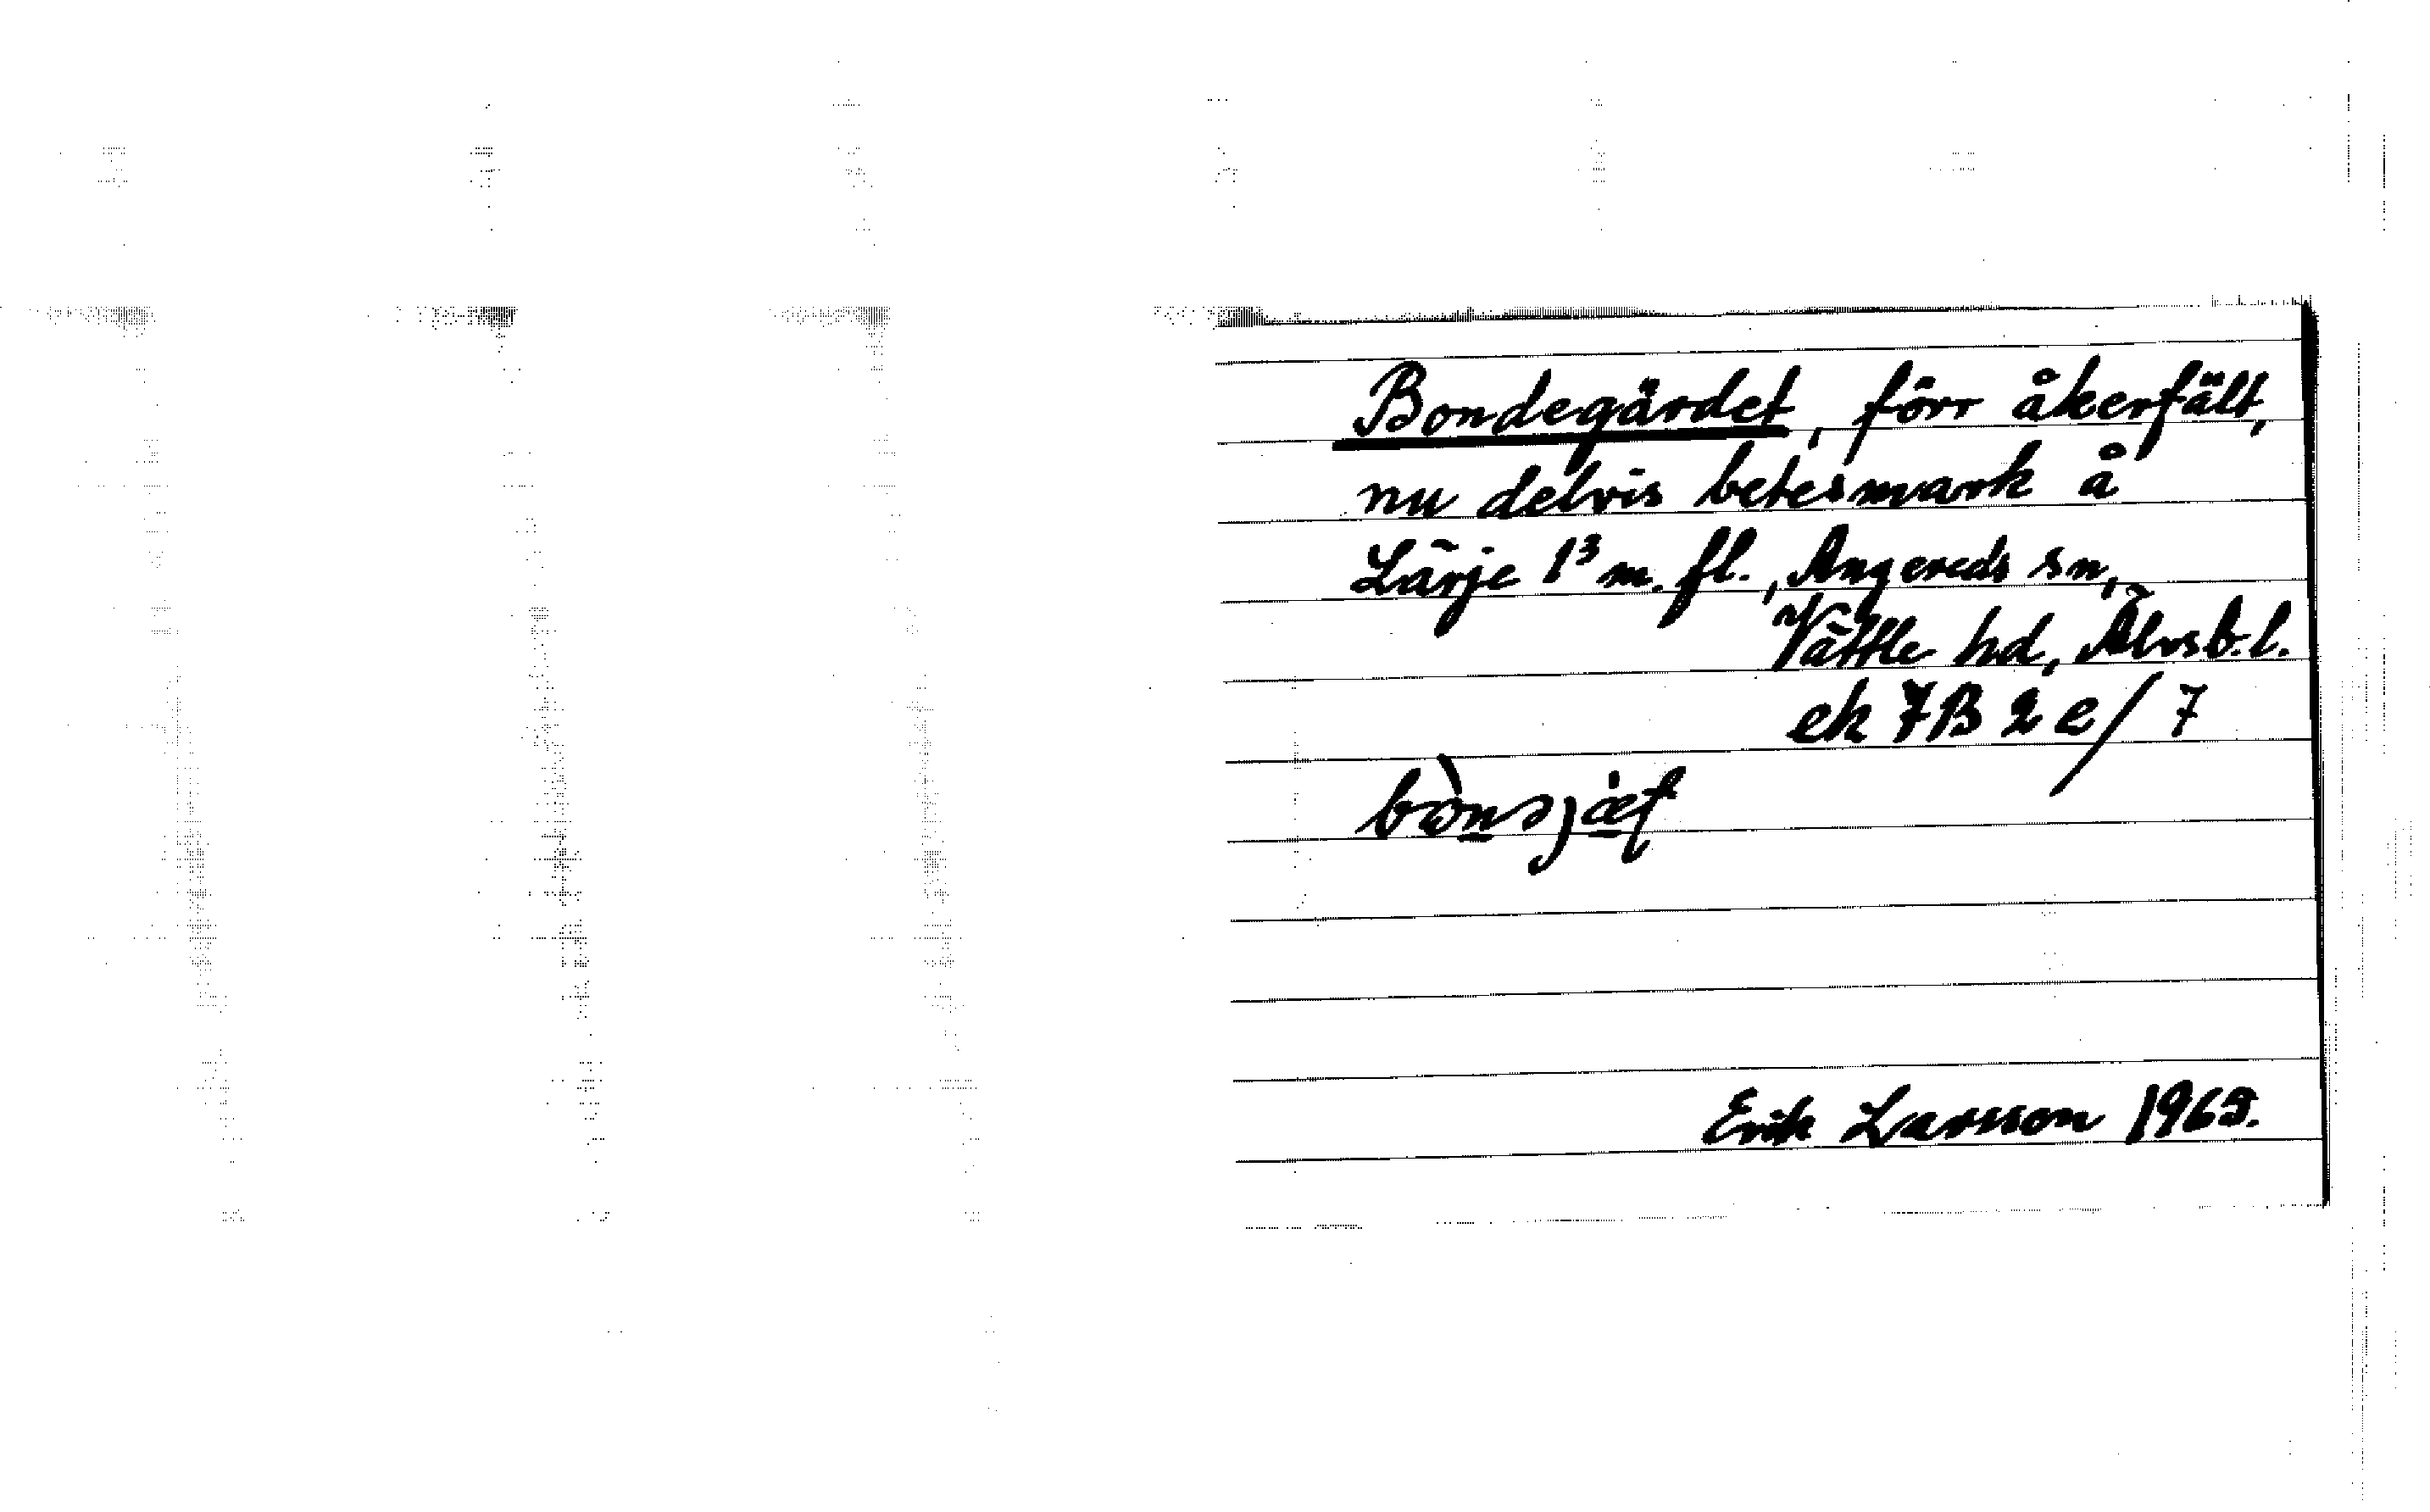 Bondegärdet, förr åkerfält,
nu delvis betesmark å
Lärje 1³ m.fl., Angereds sn,
Vättle hd, Älvsb.l.
ek 7B 2e/7
Erik Larsson 1969.